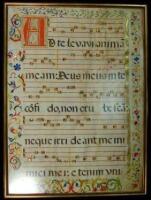 Ad te levavi animā
meam: Deus meus in te
cōfi do, non eru be scā:
neque irri de ant me ini
mici mei: etenim vni